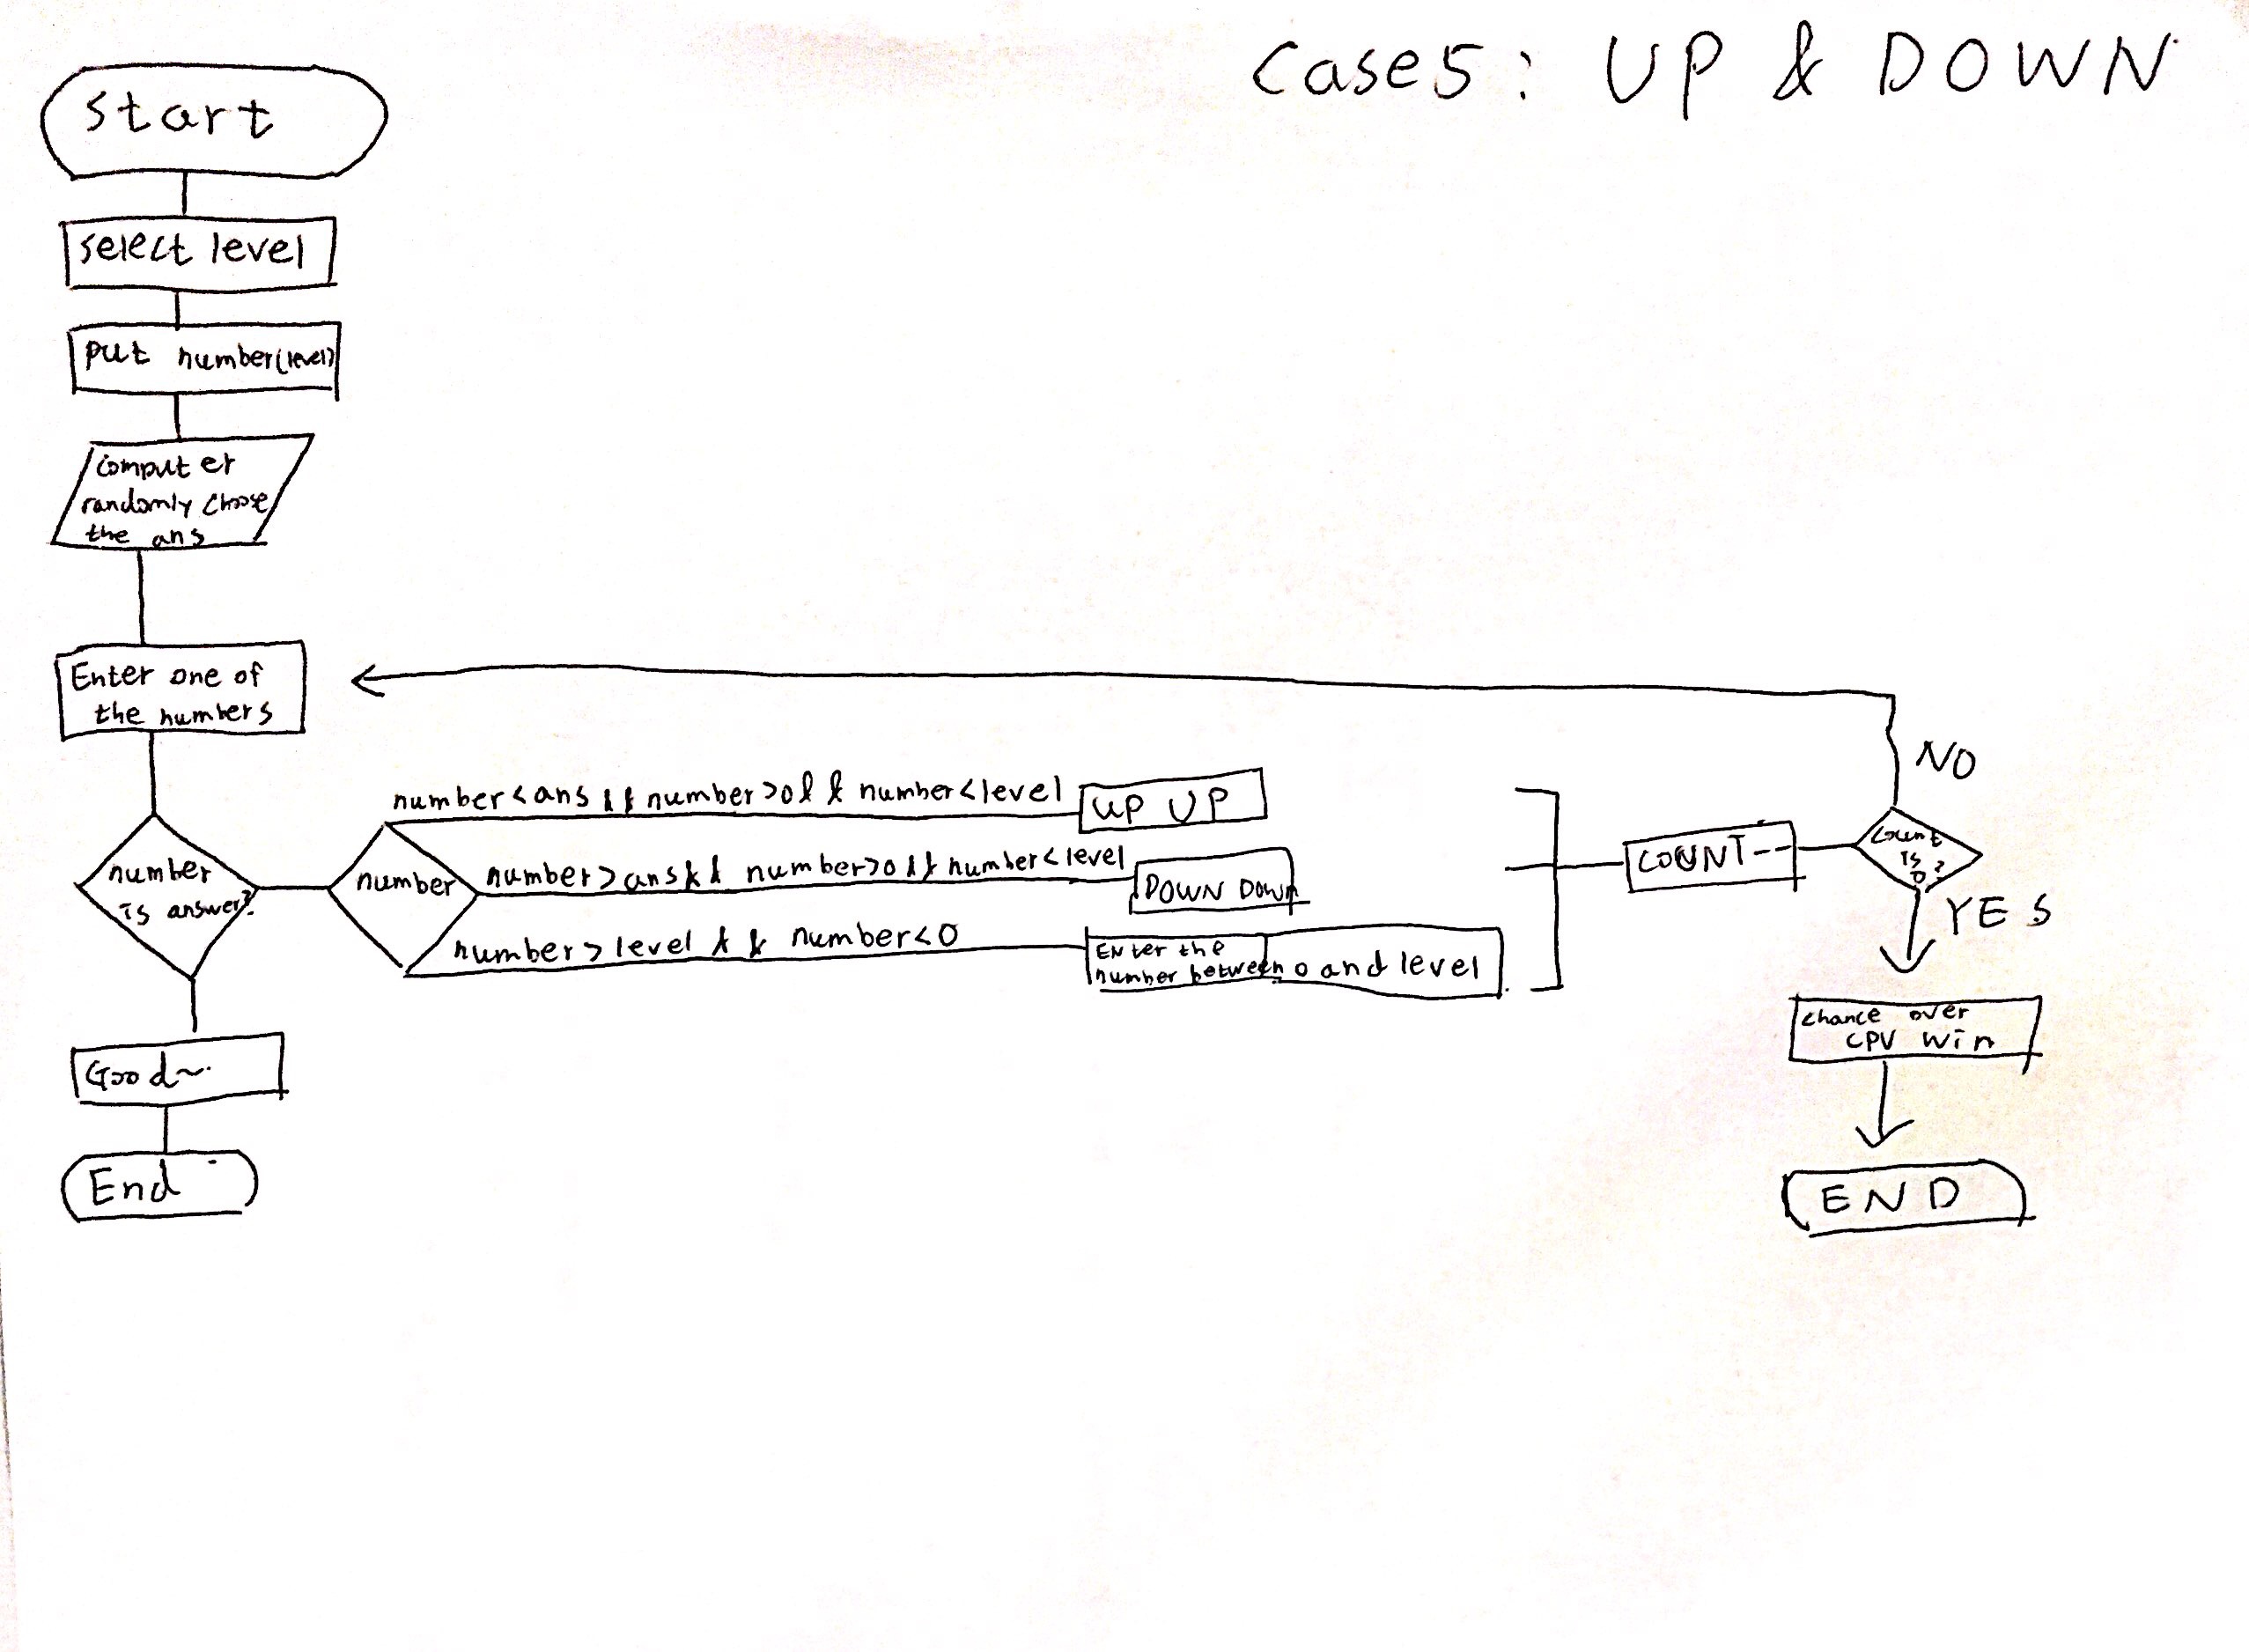 Case5: UP & DOWN
Start
select level
put number(level)
computer
randomly choose
the ans
Enter one of
the numbers
number
is answer?
number
number<ans && number>0 && number<level
UP UP
number>ans && number>0 && number<level
DOWN DOWN
number>level && number<0
Enter the
number between 0 and level
COUNT--
count
is
0?
NO
YES
chance over
CPU win
END
Good~
End